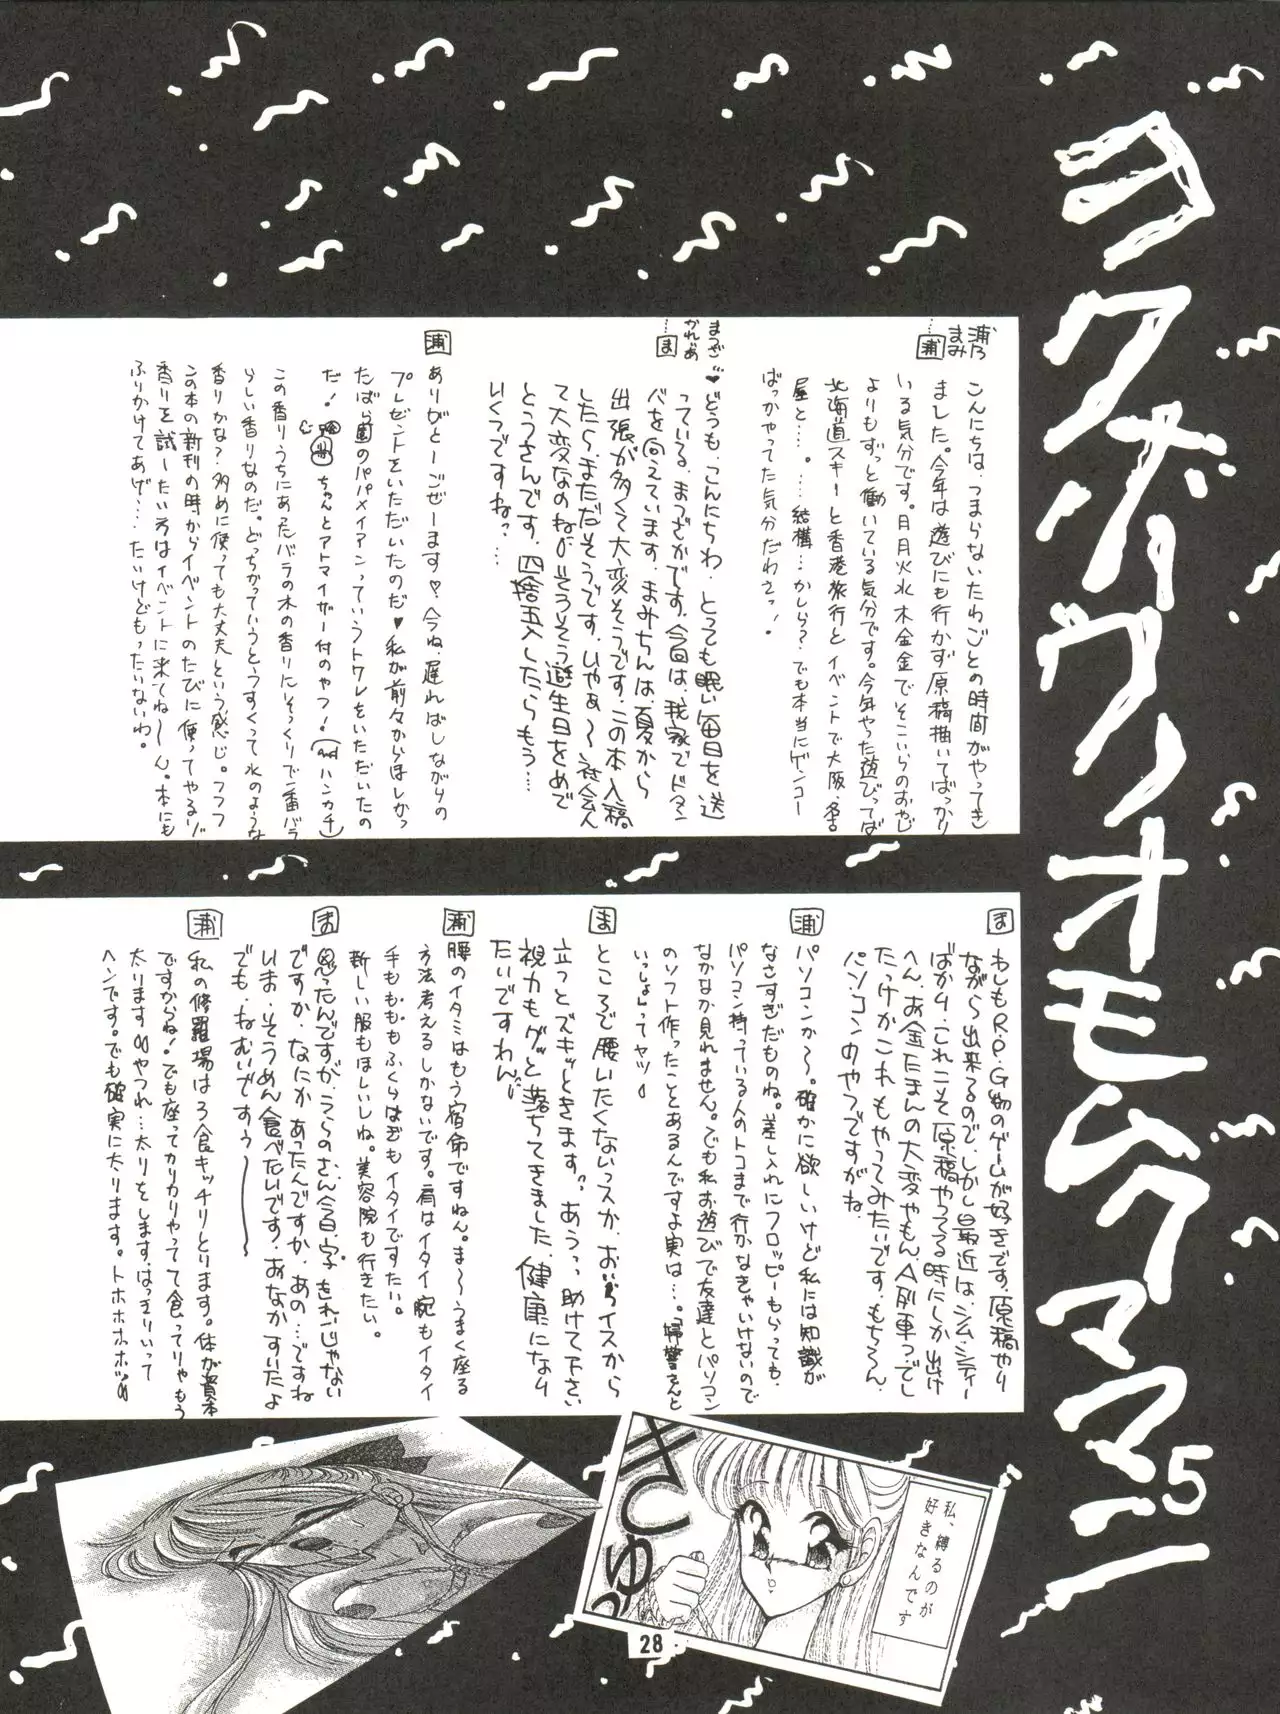 ヨクボウノオモムクママー5
浦乃まみ……浦
こんにちは、つまらないたわごとの時間がやってき
ました。今年は遊びにも行かず原稿描いてばっかり
いる気分です。月月火水木金金でそこいらのおやじ
よりもずっと働いている気分です。今年やった遊びってば
北海道スキーと香港旅行とイベントで大阪、名古
屋と……。……結構…かしら?でも本当にゲンコー
ばっかやってた気分だわさっ!
まつざかれいあ……ま
♥どうも、こんにちわ、とっても眠い毎日を送
っている、まつざかです。今回は、我家でドタン
バを向えています。まみちんは、夏から
出張が多くて大変そうです。この本入稿
したらまただそうです。いやぁ〜社会人
て大変なのねっそろそろ誕生日をめで
とうさんです。四捨五入したらもう…
いくつですねっ……
浦
ありがとーごぜーます♡今ね、遅ればしながらの
プレゼントをいただいたのだ♥私が前々からほしかっ
たばら園のパパメイアンっていうトワレをいただいたの
だ!ちゃんとアトマイザー付のやつ!(andハンカチ)
この香りうちにあったバラの木の香りにそっくりで一番バラ
らしい香りなのだ。どっちかっていうとうすくって水のような
香りかな?多めに使っても大丈夫という感じ。フフフ
この本の新刊の時からイベントのたびに使ってやるゾ
香りを試したい方はイベントに来てね〜ん。本にも
ふりかけてあげ……たいけどもったいないわ。
ま
わしもR.P.G物のゲームが好きです。原稿やり
ながら出来るので、しかし最近は、シムシティー
ばかり…これこそ原稿やってる時にしか出け
へん。お金たまんの大変やもん、A列車っでし
たっけかこれもやってみたいです。もちろん、
パソコンのやつですがね、
浦
パソコンか〜。確かに欲しいけど私には知識が
なさすぎだものね。差し入れにフロッピーもらっても、
パソコン持っている人のトコまで行かなきゃいけないので
なかなか見れません。でも私お遊びで友達とパソコン
のソフト作ったことあるんですよ実は…。「婦警さんと
いっしょ」ってヤツ
ま
ところで腰いたくないっスか、おいらイスから
立つとズキッときます。あうっっ助けて下さい
視力もグッと落ちてきました、健康になり
たいですわん
浦
腰のイタミはもう宿命ですねん。ま〜うまく座る
方法考えるしかないです。肩はイタイ腕もイタイ
手もももふくらはぎもイタイですたい。
新しい服もほしいしね。美容院も行きたい。
ま
思ったんですが、うらのさん今日、字、きれいじゃない
ですか、なにかあったんですか、あの…ですね
いま、そうめん食べたいです、おなかすいたよ
でも、ねむいですぅ〜
浦
私の修羅場は3食キッチリとります。体が資本
ですからね!でも座ってカリカリやってて食ってりゃもう
太ります やつれ…太りをします、はっきりいって
ヘンです。でも確実に太ります。トホホホホッ
私、縛るのが
好きなんです
28